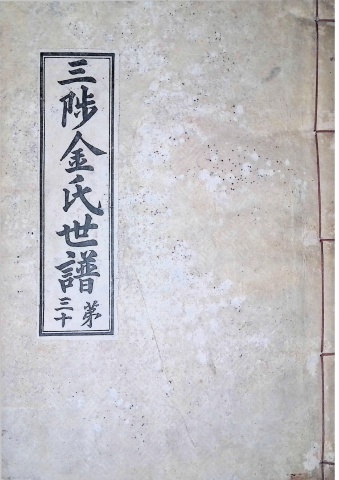 三陟金氏世譜
第
三十